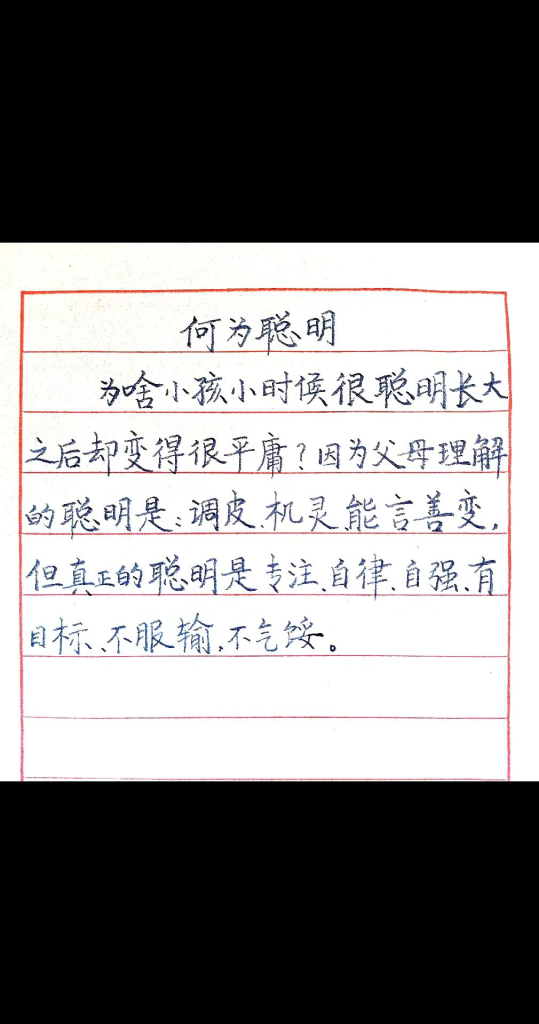 何为聪明
为啥小孩小时候很聪明长大
之后却变得很平庸？因为父母理解
的聪明是：调皮、机灵、能言善变，
但真正的聪明是专注、自律、自强、有
目标、不服输，不气馁。